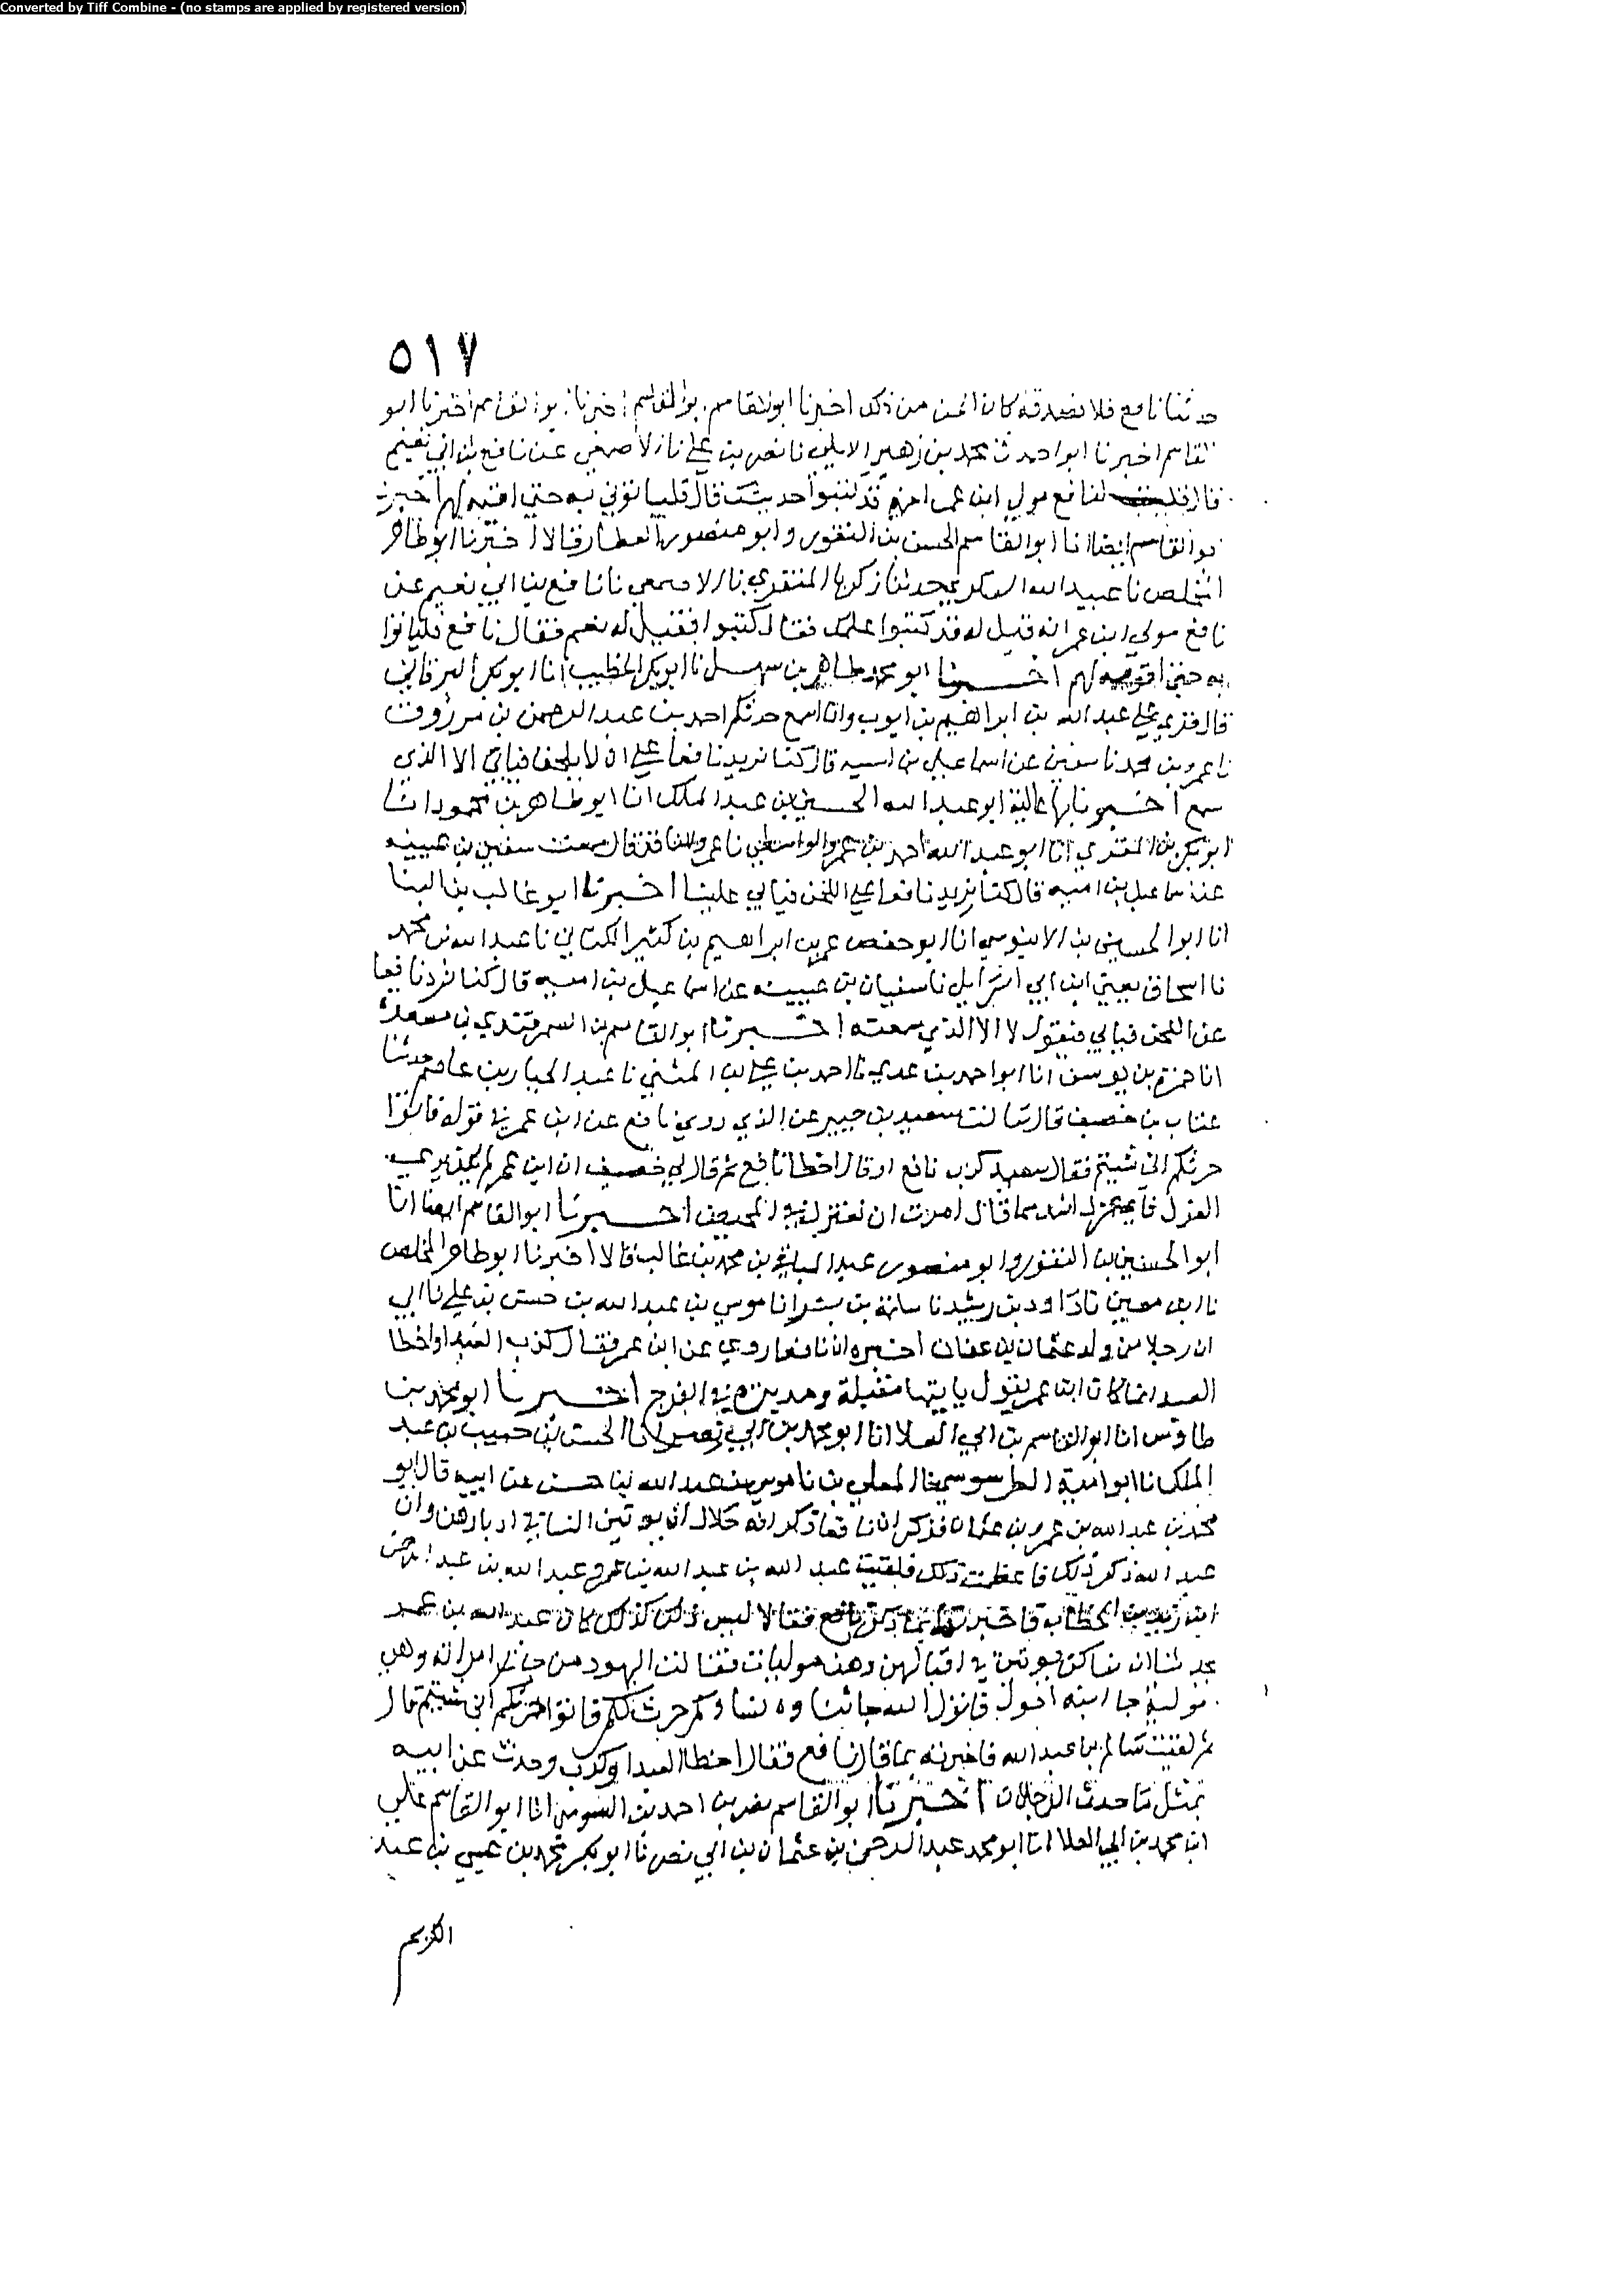 Converted by Tiff Combine - (no stamps are applied by registered version)
٥١٧
حدثنا نافع فلا نصدقه كان من ذلك اخبرنا ابو القاسم اخبرنا اخبرنا ابو
القاسم اخبرنا ابو احمد محمد بن زهير الايلي نا نصر بن علي نا الاصمعي عن نافع بن ابي نعيم
قال لنافع مولي ابن عمر انهم قد كتبوا حديثك قال فليأتوني به حتى اقيمه لهم اخبرنا
ابو القاسم ايضا انا ابو القاسم الحسن بن النقور وابو منصور العطار قالا اخبرنا ابو طاهر
المخلص نا عبيد الله السكري حدثنا زكريا المنقري نا الاصمعي نا نافع بن ابي نعيم عن
نافع مولي ابن عمر انه قيل له قد كتبوا علمك فقال كتبوا فقيل له نعم فقال نافع فليأتوا
به حتى اقومه لهم اخبرنا ابو محمد طاهر بن سهل نا ابو بكر الخطيب انا ابو بكر البرقاني
قال قري علي عبد الله بن ابراهيم بن ايوب وانا اسمع حدثكم احمد بن عبد الرحمن بن مرزوق
نا عمرو بن محمد نا سفين عن اسماعيل بن اميه قال كنا نريد نافعا علي ان لا يلحن فيابي الا الذي
سمع اخبرنا عاليا ابو عبد الله الحسين بن عبد الملك انا ابو طاهر بن محمود انا
ابو بكر بن المقري انا ابو عبد الله احمد بن عمرو الواسطي نا عمرو الناقد قال سمعت سفين بن عيينه
عن اسماعيل بن اميه قال كنا نريد نافعا علي اللحن فيابي علينا اخبرنا ابو غالب بن البنا
انا ابو الحسين بن الابنوسي انا ابو حفص عمر بن ابراهيم بن كثير الكتاني نا عبد الله بن محمد
نا اسحاق يعني ابن ابي اسرائيل نا سفيان بن عيينه عن اسماعيل بن اميه قال كنا نرد نافعا
عن اللحن فيابي فيقول لا الا الذي سمعته اخبرنا ابو القاسم بن السمرقندي بن مسعدة
انا حمزة بن يوسف انا ابو احمد بن عدي نا احمد بن علي بن المثني نا عبد الجبار بن عاصم حدثنا
عتاب بن خصيف قال سالت سعيد بن جبير عن الذي روي نافع عن ابن عمر في قوله فاتوا
حرثكم اني شيتم فقال سعيد كذب نافع او قال اخطا نافع ثم قال لي خصيف ان ابن عمر لم
العزل قال امرت ان تعتزل في المحيض اخبرنا ابو القاسم ايضا انا
ابو الحسين بن النقور وابو منصور عبد الباقي بن محمد بن غالب قالا اخبرنا ابو طاهر المخلص
نا ابن معين نا داود بن رشيد نا سلمة بن بشر انا موسي بن عبد الله بن حسن بن علي نا ابي
ان رجلا من ولد عثمان بن عفان اخبره ان نافعا روي عن ابن عمر فقال كذب العبد او اخطا
العبد انما كان ابن عمر يقول ياتيها مقبلة ومدبرة في الفرج اخبرنا ابو محمد بن
طاوس انا ابو القاسم بن ابي العلا انا ابو محمد بن ابي نصر انا الحسن بن حبيب بن عبد
الملك نا ابو امية الطرسوسي نا المعلي بن نا موسي بن عبد الله بن حسن عن ابيه قال ابو
محمد بن عبد الله بن عمرو بن عثمان فذكر ان نافعا ذكر انه حلال ان يوتين النسا في ادبارهن وان
عبد الله ذكر ذلك فاعظمت ذلك فلقيت عبد الله بن عبد الله بن عمر وعبد الله بن عبد الرحمن
ابن زيد بن الخطاب فاخبرتهما بما ذكر نافع فقالا ليس ذلك كذلك كان عبد الله بن عمر
يحدثنا ان نساكن يوتين في اقبالهن وهن موليات فقالت اليهود من جا امراته وهي
مولية جا ابنه احول فانزل الله نساوكم حرث لكم فاتوا حرثكم اني شيتم قال
ثم لقيت سالم بن عبد الله فاخبرته بما قال نافع فقال اخطا العبد او كذب وحدث عن ابيه
بمثل ما حدث الرجلان اخبرنا ابو القاسم نصر بن احمد بن السوسي انا ابو القاسم علي
ابن محمد بن ابي العلا انا ابو محمد عبد الرحمن بن عثمان بن ابي نصر نا ابو بكر محمد بن عيسي بن عبد
الكريم